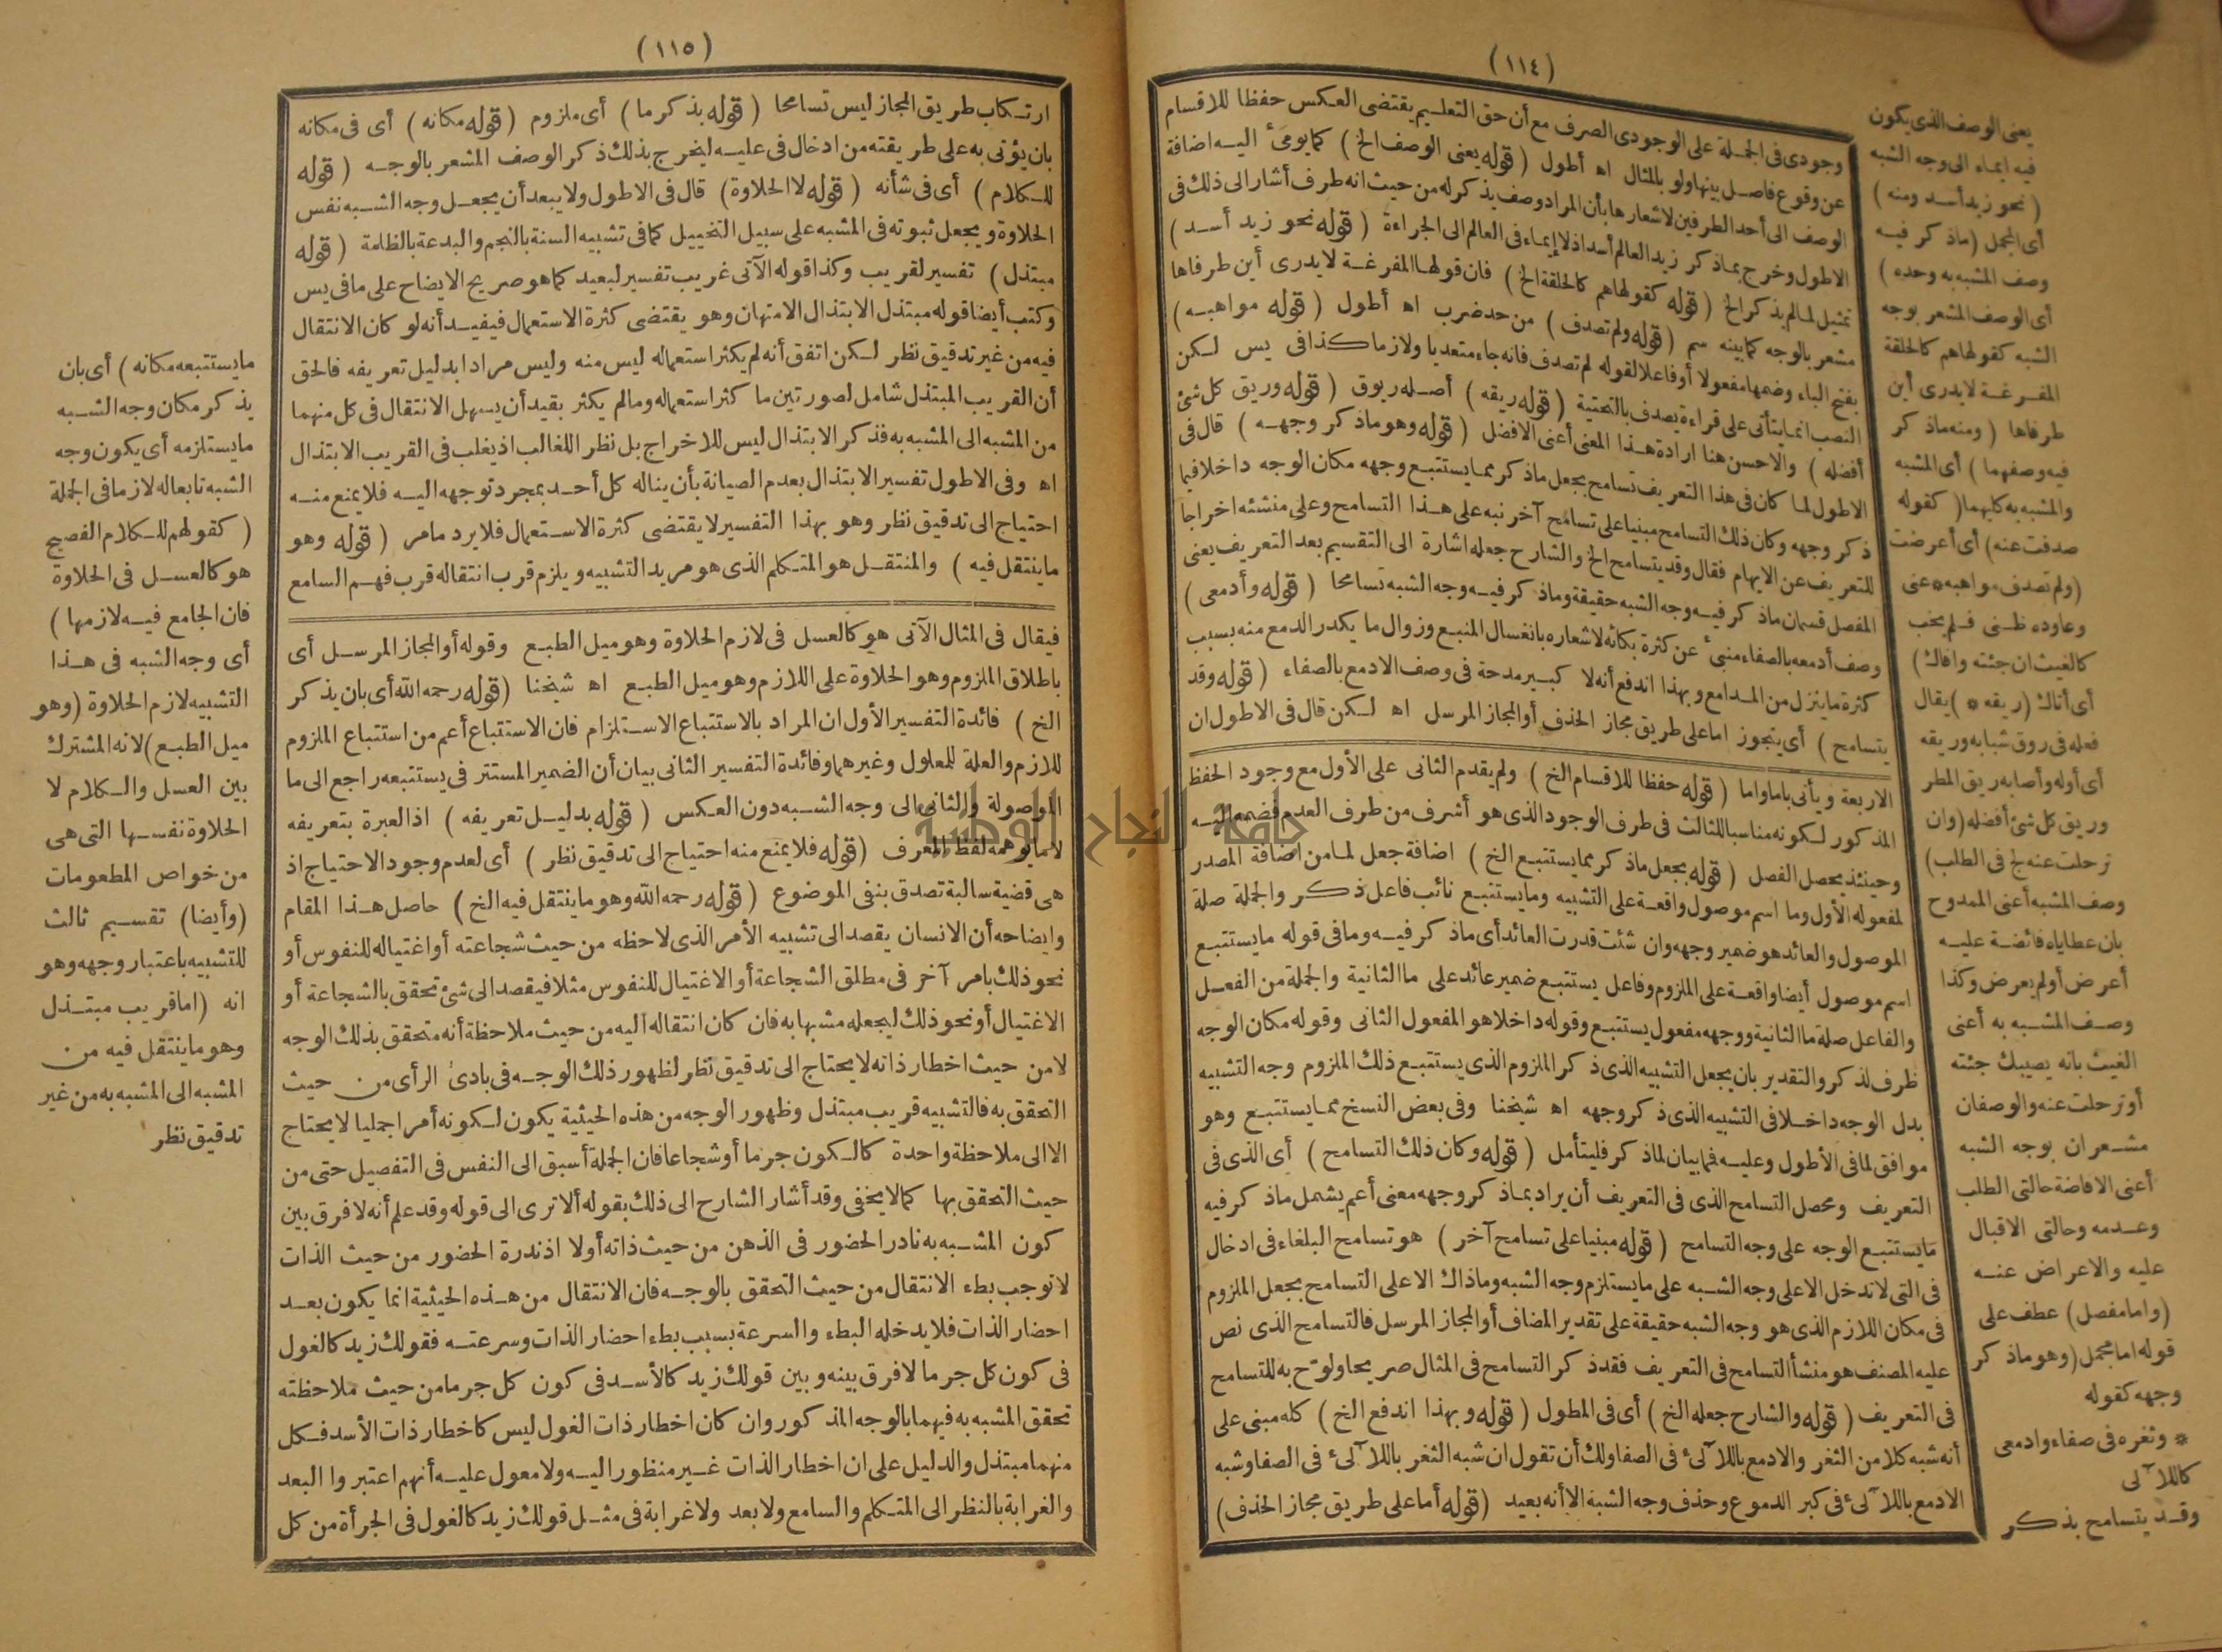 (١١٤)
يعنى الوصف الذى يكون
فيه ايماء الى وجه الشبه
(نحو زيد أسد ومنه)
أى المجمل (ماذكر فيه
وصف المشبه به وحده)
أى الوصف المشعر بوجه
الشبه كقولهاهم كالحلقة
المفرغة لايدرى أين
طرفاها (ومنه ماذكر
فيه وصفهما) أى المشبه
والمشبه به كليهما (كقوله
صدفت عنه) أى أعرضت
(ولم تصدف مواهبه * عنى
وعاوده ظنى فلم يخب
كالغيث ان جئته وافاك)
أى أتاك (ريقه *) يقال
فعله فى روق شبابه وريقه
أى أوله وأصابه ريق المطر
وريق كل شئ أفضله (وان
ترحلت عنه لج فى الطلب)
وصف المشبه أعنى الممدوح
بان عطاياه فائضة عليه
أعرض أولم يعرض وكذا
وصف المشبه به أعنى
الغيث بانه يصيبك جئته
أوترحلت عنه والوصفان
مشعران بوجه الشبه
أعنى الافاضة حالتى الطلب
وعدمه وحالتى الاقبال
عليه والاعراض عنه
(وامامفصل) عطف على
قوله امامجمل (وهو ماذكر
وجهه كقوله
* وثغره فى صفاء وادمعى
كاللآلى
وقد يتسامح بذكر
وجودى فى الجملة على الوجودى الصرف مع أن حق التعليم يقتضى العكس حفظا للاقسام
عن وقوع فاصل بينها ولو بالمثال اه أطول (قوله يعنى الوصف الخ) كمايومئ اليه اضافة
الوصف الى أحد الطرفين لاشعارها بأن المراد وصف يذكر له من حيث انه طرف أشار الى ذلك فى
الاطول وخرج بماذكر زيد العالم أسد اذ لا إيماء فى العالم الى الجراءة (قوله نحو زيد أسد)
تمثيل لمالم يذكر الخ (قوله كقولهاهم كالحلقة الخ) فان قولها المفرغة لايدرى أين طرفاها
مشعر بالوجه كمابينه سم (قوله ولم تصدف) من حد ضرب اه أطول (قوله مواهبه)
بفتح الباء وضمها مفعولا أوفاعلا لقوله لم تصدف فانه جاء متعديا ولازما كذا فى يس لكن
النصب انما يتأتى على قراءة يصدف بالتحتية (قوله ريقه) أصله ريوق (قوله وريق كل شئ
أفضله) والاحسن هنا ارادة هذا المعنى أعنى الافضل (قوله وهو ماذكر وجهه) قال فى
الاطول لما كان فى هذا التعريف تسامح بجعل ماذكر مما يستتبع وجهه مكان الوجه داخلا فيما
ذكر وجهه وكان ذلك التسامح مبنيا على تسامح آخر نبه على هذا التسامح وعلى منشئه اخراجا
للتعريف عن الايهام فقال وقد يتسامح الخ والشارح جعله اشارة الى التقسيم بعد التعريف يعنى
المفصل قسمان ماذكر فيه وجه الشبه حقيقة وماذكر فيه وجه الشبه تسامحا (قوله وأدمعى)
وصف أدمعه بالصفاء منبئ عن كثرة بكائه لاشعاره بانغسال المنبع وزوال ما يكدر الدمع منه بسبب
كثرة ماينزل من المدامع وبهذا اندفع أنه لا كبير مدحة فى وصف الادمع بالصفاء (قوله وقد
يتسامح) أى يتجوز اما على طريق مجاز الحذف أوالمجاز المرسل اه لكن قال فى الاطول ان
الاربعة ويأتى باماواما (قوله حفظا للاقسام الخ) ولم يقدم الثانى على الأول مع وجود الحفظ
المذكور لكونه مناسبا للثالث فى طرف الوجود الذى هو أشرف من طرف العدم فضمه اليه
وحينئذ يحصل الفصل (قوله بجعل ماذكر مما يستتبع الخ) اضافة جعل لما من اضافة المصدر
لمفعوله الأول وما اسم موصول واقعة على التشبيه ومايستتبع نائب فاعل ذكر والجملة صلة
الموصول والعائد هو ضمير وجهه وان شئت قدرت العائد أى ماذكر فيه ومافى قوله مايستتبع
اسم موصول أيضا واقعة على الملزوم وفاعل يستتبع ضمير عائد على ما الثانية والجملة من الفعل
والفاعل صلة ما الثانية ووجهه مفعول يستتبع وقوله داخلا هو المفعول الثانى وقوله مكان الوجه
ظرف لذكر والتقدير بان يجعل التشبيه الذى ذكر الملزوم الذى يستتبع ذلك الملزوم وجه التشبيه
بدل الوجه داخلا فى التشبيه الذى ذكر وجهه اه شيخنا وفى بعض النسخ مما يستتبع وهو
موافق لمافى الأطول وعليه فمابيان لماذكر فليتأمل (قوله وكان ذلك التسامح) أى الذى فى
التعريف ومحصل التسامح الذى فى التعريف أن يراد بماذكر وجهه معنى أعم يشمل ماذكر فيه
مايستتبع الوجه على وجه التسامح (قوله مبنيا على تسامح آخر) هو تسامح البلغاء فى ادخال
فى التى لاتدخل الاعلى وجه الشبه على مايستلزم وجه الشبه وماذاك الاعلى التسامح بجعل الملزوم
فى مكان اللازم الذى هو وجه الشبه حقيقة على تقدير المضاف أوالمجاز المرسل فالتسامح الذى نص
عليه المصنف هو منشأ التسامح فى التعريف فقد ذكر التسامح فى المثال صريحا ولوّح به للتسامح
فى التعريف (قوله والشارح جعله الخ) أى فى المطول (قوله وبهذا اندفع الخ) كله مبنى على
أنه شبه كلا من الثغر والادمع باللآلئ فى الصفا ولك أن تقول ان شبه الثغر باللآلئ فى الصفا وشبه
الادمع باللآلئ فى كبر الدموع وحذف وجه الشبه الا أنه بعيد (قوله أما على طريق مجاز الحذف)
(١١٥)
ارتكاب طريق المجاز ليس تسامحا (قوله بذكر ما) أى ملزوم (قوله مكانه) أى فى مكانه
بان يؤتى به على طريقته من ادخال فى عليه ليخرج بذلك ذكر الوصف المشعر بالوجه (قوله
للكلام) أى فى شأنه (قوله لا الحلاوة) قال فى الاطول ولا يبعد أن يجعل وجه الشبه نفس
الحلاوة ويجعل ثبوته فى المشبه على سبيل التخييل كمافى تشبيه السنة بالنجم والبدعة بالظلمة (قوله
مبتذل) تفسير لقريب وكذا قوله الآتى غريب تفسير لبعيد كماهو صريح الايضاح على مافى يس
وكتب أيضا قوله مبتذل الابتذال الامتهان وهو يقتضى كثرة الاستعمال فيفيد أنه لو كان الانتقال
فيه من غير تدقيق نظر لكن اتفق أنه لم يكثر استعماله ليس منه وليس مرادا بدليل تعريفه فالحق
أن القريب المبتذل شامل لصورتين ما كثر استعماله ومالم يكثر بقيد أن يسهل الانتقال فى كل منهما
من المشبه الى المشبه به فذكر الابتذال ليس للاخراج بل نظر اللغالب اذ يغلب فى القريب الابتذال
اه وفى الاطول تفسير الابتذال بعدم الصيانة بأن يناله كل أحد بمجرد توجهه اليه فلا يمنع منه
احتياج الى تدقيق نظر وهو بهذا التفسير لا يقتضى كثرة الاستعمال فلا يرد مامر (قوله وهو
ماينتقل فيه) والمنتقل هو المتكلم الذى هو مريد التشبيه ويلزم قرب انتقاله قرب فهم السامع
فيقال فى المثال الآتى هو كالعسل فى لازم الحلاوة وهو ميل الطبع وقوله أوالمجاز المرسل أى
باطلاق الملزوم وهو الحلاوة على اللازم وهو ميل الطبع اه شيخنا (قوله رحمه الله أى بان يذكر
الخ) فائدة التفسير الأول ان المراد بالاستتباع الاستلزام فان الاستتباع أعم من استتباع الملزوم
للازم والعلة للمعلول وغيرهما وفائدة التفسير الثانى بيان أن الضمير المستتر فى يستتبعه راجع الى ما
الموصولة والثانى الى وجه الشبه دون العكس (قوله بدليل تعريفه) اذ العبرة بتعريفه
لامايوهمه لفظ المعرف (قوله فلا يمنع منه احتياج الى تدقيق نظر) أى لعدم وجود الاحتياج اذ
هى قضية سالبة تصدق بنفى الموضوع (قوله رحمه الله وهو ماينتقل فيه الخ) حاصل هذا المقام
وايضاحه أن الانسان يقصد الى تشبيه الأمر الذى لاحظه من حيث شجاعته أو اغتياله للنفوس أو
نحو ذلك بامر آخر فى مطلق الشجاعة أو الاغتيال للنفوس مثلا فيقصد الى شئ تحقق بالشجاعة أو
الاغتيال أونحو ذلك ليجعله مشبها به فان كان انتقاله اليه من حيث ملاحظة أنه متحقق بذلك الوجه
لامن حيث اخطار ذاته لايحتاج الى تدقيق نظر لظهور ذلك الوجه فى بادئ الرأى من حيث
التحقق به فالتشبيه قريب مبتذل وظهور الوجه من هذه الحيثية يكون لكونه أمرا جمليا لايحتاج
الاالى ملاحظة واحدة كالكون جرما أو شجاعا فان الجملة أسبق الى النفس فى التفصيل حتى من
حيث التحقق بها كمالا يخفى وقد أشار الشارح الى ذلك بقوله ألا ترى الى قوله وقد علم أنه لا فرق بين
كون المشبه به نادر الحضور فى الذهن من حيث ذاته أولا اذ ندرة الحضور من حيث الذات
لا توجب بطء الانتقال من حيث التحقق بالوجه فان الانتقال من هذه الحيثية انما يكون بعد
احضار الذات فلا يدخله البطء والسرعة بسبب بطء احضار الذات وسرعته فقولك زيد كالغول
فى كون كل جرما لا فرق بينه وبين قولك زيد كالأسد فى كون كل جرما من حيث ملاحظته
تحقق المشبه به فيهما بالوجه المذكور وان كان اخطار ذات الغول ليس كاخطار ذات الأسد فكل
منهما مبتذل والدليل على ان اخطار الذات غير منظور اليه ولا معول عليه أنهم اعتبروا البعد
والغرابة بالنظر الى المتكلم والسامع ولا بعد ولا غرابة فى مثل قولك زيد كالغول فى الجرأة من كل
مايستتبعه مكانه) أى بان
يذكر مكان وجه الشبه
مايستلزمه أى يكون وجه
الشبه تابعا له لازما فى الجملة
(كقولهم للكلام الفصيح
هو كالعسل فى الحلاوة
فان الجامع فيه لازمها)
أى وجه الشبه فى هذا
التشبيه لازم الحلاوة (وهو
ميل الطبع) لانه المشترك
بين العسل والكلام لا
الحلاوة نفسها التى هى
من خواص المطعومات
(وأيضا) تقسيم ثالث
للتشبيه باعتبار وجهه وهو
انه (اماقريب مبتذل
وهو ماينتقل فيه من
المشبه الى المشبه به من غير
تدقيق نظر
جامعة النجاح الوطنية